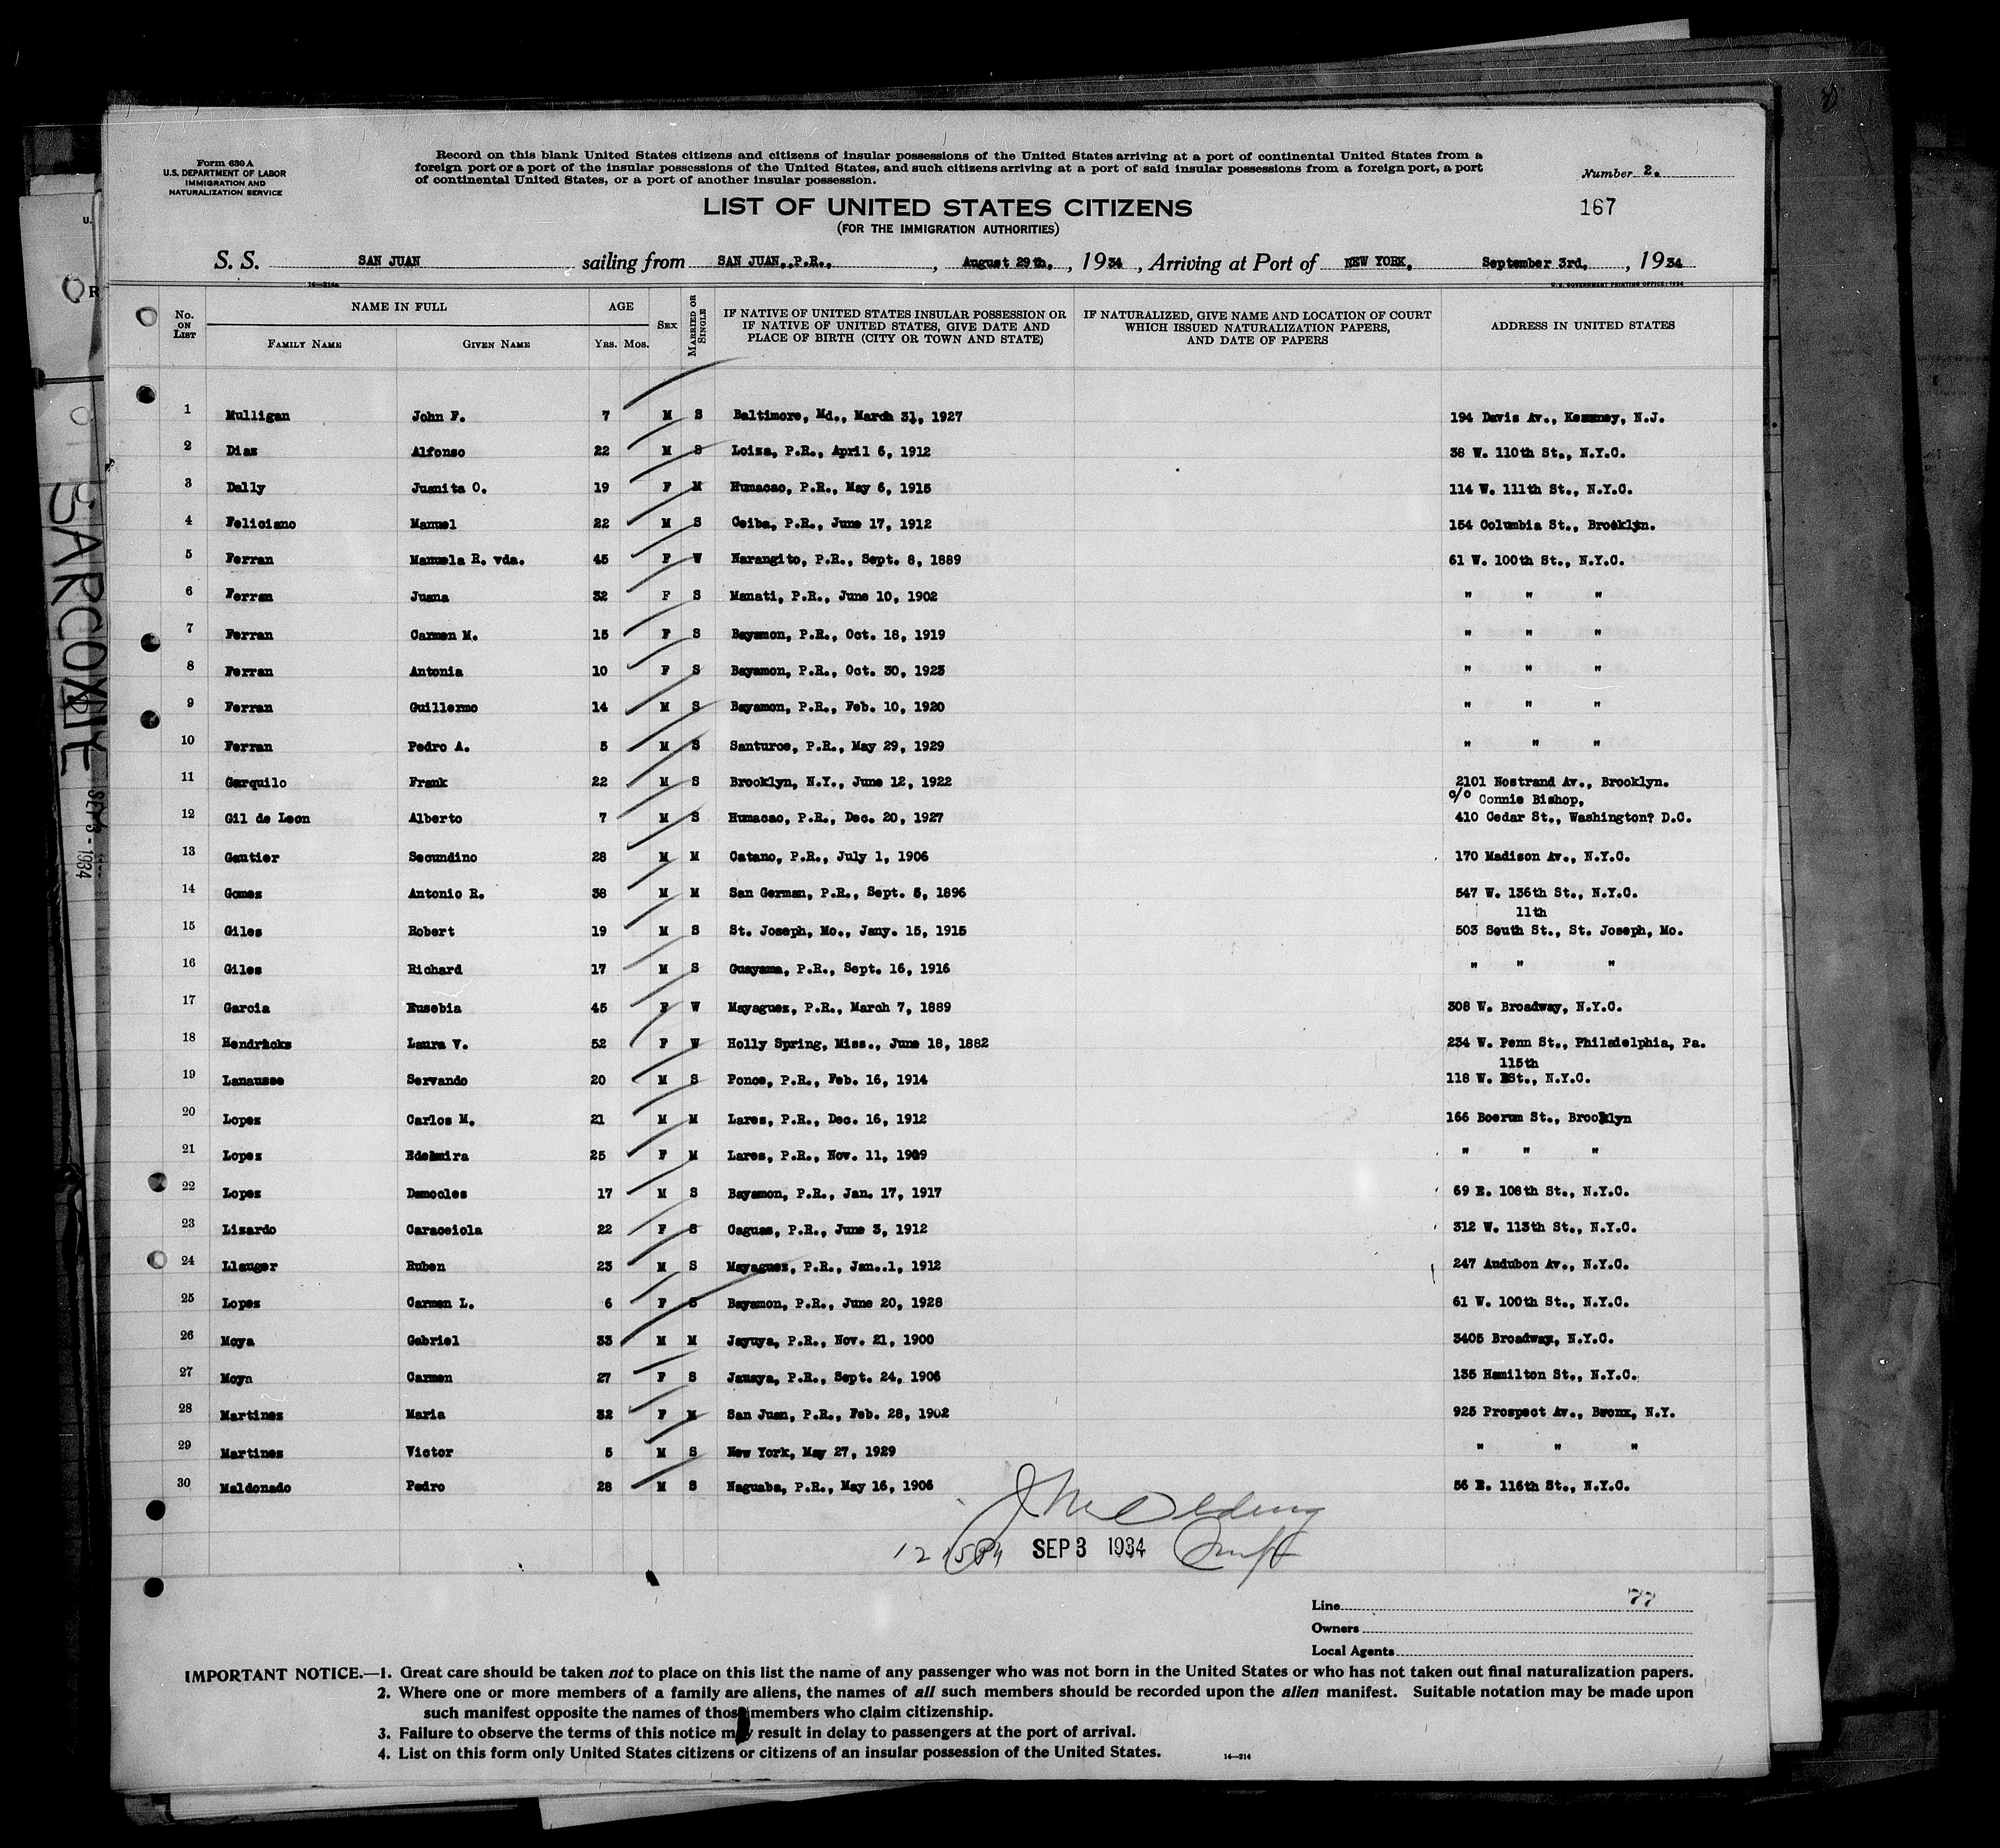 Form 630 A
U.S. DEPARTMENT OF LABOR
IMMIGRATION AND
NATURALIZATION SERVICE
Record on this blank United States citizens and citizens of insular possessions of the United States arriving at a port of continental United States from a
foreign port or a port of the insular possessions of the United States, and such citizens arriving at a port of said insular possessions from a foreign port, a port
of continental United States, or a port of another insular possession.
Number 2.
167
LIST OF UNITED STATES CITIZENS
(FOR THE IMMIGRATION AUTHORITIES)
S. S. SAN JUAN sailing from SAN JUAN,,P.R., , August 29th, , 1934 , Arriving at Port of NEW YORK, September 3rd, , 1934
16—314a
U. S. GOVERNMENT PRINTING OFFICE: 1934
No. ON LIST NAME IN FULL FAMILY NAME GIVEN NAME AGE YRS. MOS. SEX MARRIED OR SINGLE IF NATIVE OF UNITED STATES INSULAR POSSESSION OR IF NATIVE OF UNITED STATES, GIVE DATE AND PLACE OF BIRTH (CITY OR TOWN AND STATE) IF NATURALIZED, GIVE NAME AND LOCATION OF COURT WHICH ISSUED NATURALIZATION PAPERS, AND DATE OF PAPERS ADDRESS IN UNITED STATES
1 Mulligan John F. 7 M S Baltimore, Md., March 31, 1927 194 Davis Av., N.J.
2 Diaz Alfonso 22 M S Loiza, P.R., April 6, 1912 38 W. 110th St., N.Y.C.
3 Dally Juanita O. 19 F M Humacao, P.R., May 6, 1915 114 W. 111th St., N.Y.C.
4 Feliciano Manuel 22 M S Ceiba, P.R., June 17, 1912 154 Columbia St., Brooklyn.
5 Ferran Manuela R. vda. 45 F W Narangito, P.R., Sept. 8, 1889 61 W. 100th St., N.Y.C.
6 Ferran Juana 32 F S Manati, P.R., June 10, 1902 " " "
7 Ferran Carmen M. 15 F S Bayamon, P.R., Oct. 18, 1919 " " "
8 Ferran Antonia 10 F S Bayamon, P.R., Oct. 30, 1923 " " "
9 Ferran Guillermo 14 M S Bayamon, P.R., Feb. 10, 1920 " " "
10 Ferran Pedro A. 5 M S Santurce, P.R., May 29, 1929 " " "
11 Garquilo Frank 22 M S Brooklyn, N.Y., June 12, 1922 2101 Nostrand Av., Brooklyn.
c/o Connie Bishop,
12 Gil de Leon Alberto 7 M S Humacao, P.R., Dec. 20, 1927 410 Cedar St., Washington? D.C.
13 Gautier Secundino 28 M M Catano, P.R., July 1, 1906 170 Madison Av., N.Y.C.
14 Gomez Antonio R. 38 M M San German, P.R., Sept. 5, 1896 547 W. 136th St., N.Y.C.
11th
15 Giles Robert 19 M S St. Joseph, Mo., Jany. 15, 1915 503 South St., St. Joseph, Mo.
16 Giles Richard 17 M S Guayama, P.R., Sept. 16, 1916 " " "
17 Garcia Eusebia 45 F W Mayaguez, P.R., March 7, 1889 308 W. Broadway, N.Y.C.
18 Hendricks Laura V. 52 F W Holly Spring, Miss., June 18, 1882 234 W. Penn St., Philadelphia, Pa.
115th
19 Lanausse Servando 20 M S Ponce, P.R., Feb. 16, 1914 118 W. St., N.Y.C.
20 Lopez Carlos M. 21 M M Lares, P.R., Dec. 16, 1912 166 Boerum St., Brooklyn
21 Lopez Edelmira 25 F M Lares, P.R., Nov. 11, 1909 " " "
22 Lopez Damocles 17 M S Bayamon, P.R., Jan. 17, 1917 69 E. 106th St., N.Y.C.
23 Lizardo Caracciola 22 F S Caguas, P.R., June 3, 1912 312 W. 113th St., N.Y.C.
24 Llauger Ruben 23 M S Mayaguez, P.R., Jan..1, 1912 247 Audubon Av., N.Y.C.
25 Lopez Carmen L. 6 F S Bayamon, P.R., June 20, 1928 61 W. 100th St., N.Y.C.
26 Moya Gabriel 33 M M Jayuya, P.R., Nov. 21, 1900 3405 Broadway, N.Y.C.
27 Moya Carmen 27 F S P.R., Sept. 24, 1906 135 Hamilton St., N.Y.C.
28 Martinez Maria 32 F M San Juan, P.R., Feb. 28, 1902 925 Prospect Av., Bronx, N.Y.
29 Martinez Victor 5 M S New York, May 27, 1929 " " "
30 Maldonado Pedro 28 M S Naguabo, P.R., May 16, 1906 56 E. 116th St., N.Y.C.
SEP 3 1934
Line 77
Owners
Local Agents
IMPORTANT NOTICE.—1. Great care should be taken not to place on this list the name of any passenger who was not born in the United States or who has not taken out final naturalization papers.
2. Where one or more members of a family are aliens, the names of all such members should be recorded upon the alien manifest. Suitable notation may be made upon
such manifest opposite the names of those members who claim citizenship.
3. Failure to observe the terms of this notice may result in delay to passengers at the port of arrival.
4. List on this form only United States citizens or citizens of an insular possession of the United States.
16—314
SARCOXIE
SEP 3 - 1934